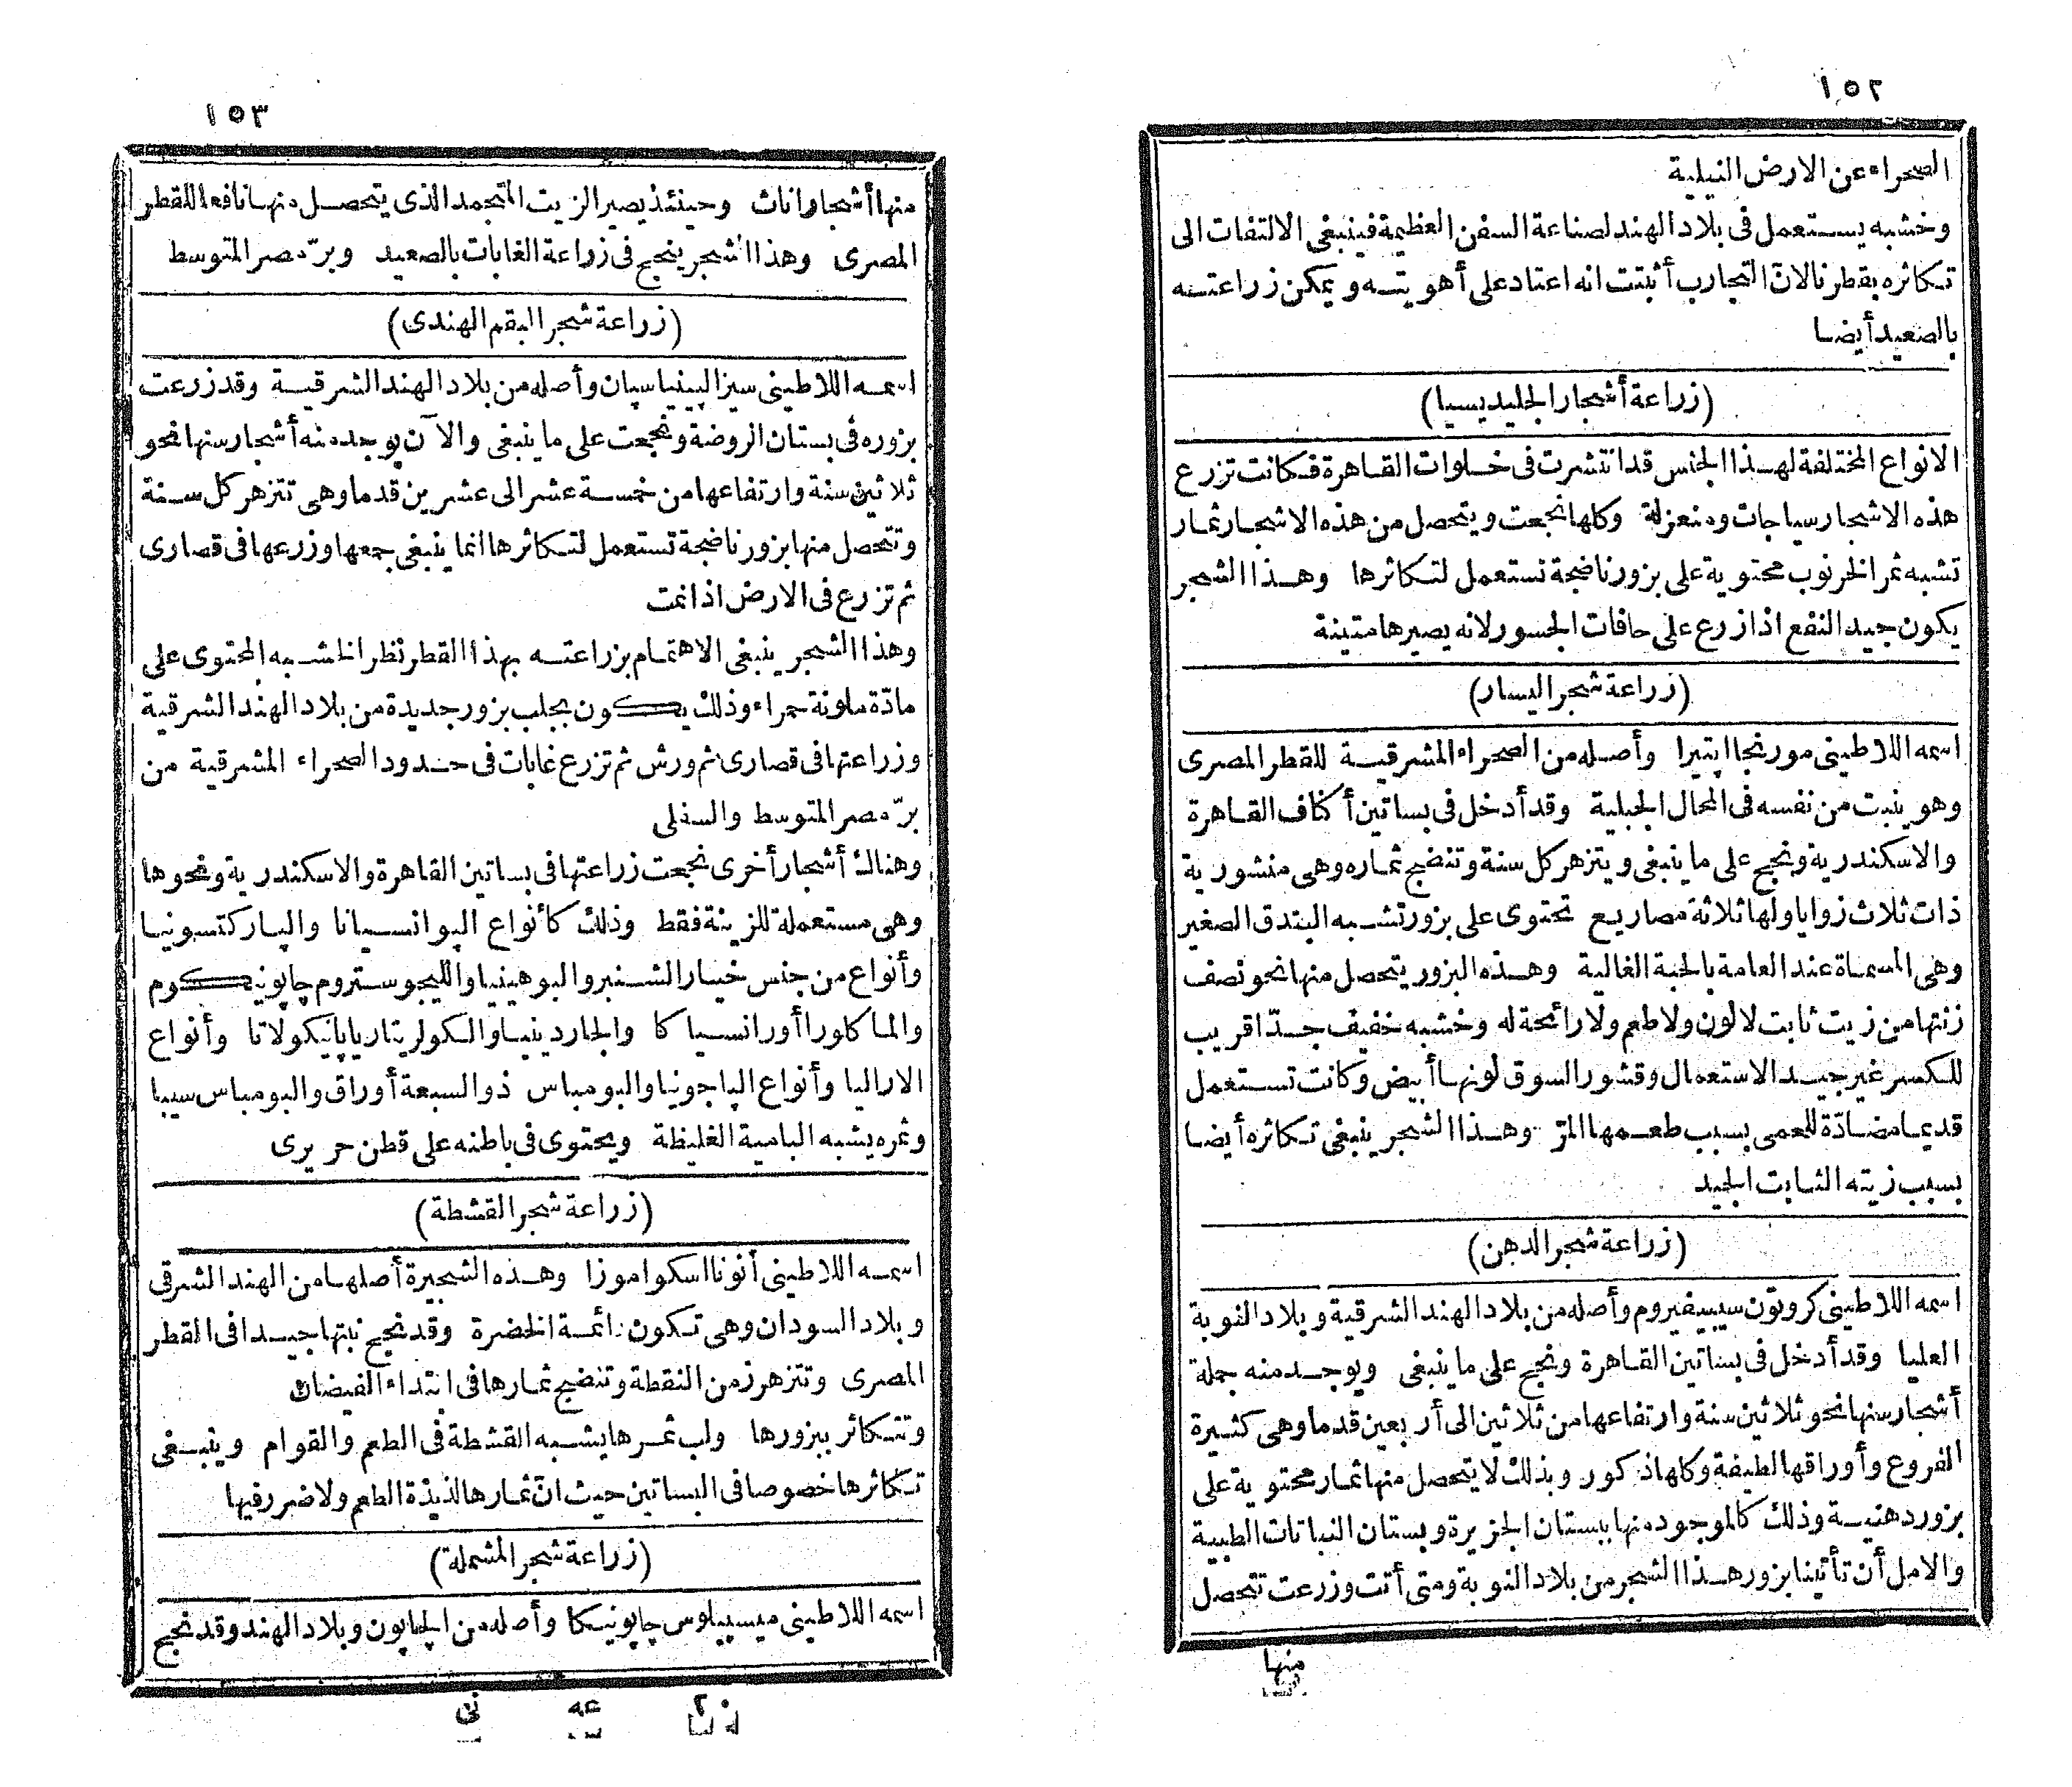 ١٥٢
الصحراء عن الارض النيلية
وخشبه يستعمل فى بلاد الهند لصناعة السفن العظيمة فينبغى الالتفات الى
تكاثره بقطرنا لانّ التجارب أثبتت انه اعتاد على أهويته ويمكن زراعته
بالصعيد أيضا
(زراعة أشجار الجليديسيا)
الانواع المختلفة لهذا الجنس قد انتشرت فى خلوات القاهرة فكانت تزرع
هذه الاشجار سياجات ومنعزلة وكلها نجعت ويتحصل من هذه الاشجار ثمار
تشبه ثمر الخرنوب محتوية على بزور ناضجة تستعمل لتكاثرها وهذا الشجر
يكون جيد النفع اذا زرع على حافات الجسور لانه يصيرها متينة
(زراعة شجر اليسار)
اسمه اللاطينى مورنجا اپتيرا وأصله من الصحراء المشرقية للقطر المصرى
وهو ينبت من نفسه فى المحال الجبلية وقد أدخل فى بساتين أكناف القاهرة
والاسكندرية ونجح على ما ينبغى ويتزهر كل سنة وتنضج ثماره وهى منشورية
ذات ثلاث زوايا ولها ثلاثة مصاريع تحتوى على بزور تشبه البندق الصغير
وهى المسماة عند العامة بالحبة الغالية وهذه البزور يتحصل منها نحو نصف
زنتها من زيت ثابت لا لون ولا طعم ولا رائحة له وخشبه خفيف جدّا قريب
للكسر غير جيد الاستعمال وقشور السوق لونها أبيض وكانت تستعمل
قديما مضادّة للحمى بسبب طعمها المرّ وهذا الشجر ينبغى تكاثره أيضا
بسبب زيته الثابت الجيد
(زراعة شجر الدهن)
اسمه اللاطينى كروتون سيبيفيروم وأصله من بلاد الهند الشرقية وبلاد النوبة
العليا وقد أدخل فى بساتين القاهرة ونجح على ما ينبغى ويوجد منه جملة
أشجار سنها نحو ثلاثين سنة وارتفاعها من ثلاثين الى أربعين قدما وهى كثيرة
الفروع وأوراقها لطيفة وكلها ذكور وبذلك لا يتحصل منها ثمار محتوية على
بزور دهنية وذلك كالموجود منها ببستان الجزيرة وبستان النباتات الطبية
والامل أن تأتينا بزور هذا الشجر من بلاد النوبة ومتى أتت وزرعت تتحصل
منها
١٥٣
منها أشجار اناث وحينئذ يصير الزيت المتجمد الذى يتحصل منها نافعا للقطر
المصرى وهذا الشجر ينجح فى زراعة الغابات بالصعيد وبرّ مصر المتوسط
(زراعة شجر البقم الهندى)
اسمه اللاطينى سيزالپينيا سپان وأصله من بلاد الهند الشرقية وقد زرعت
بزوره فى بستان الروضة ونجعت على ما ينبغى والآن يوجد منه أشجار سنها نحو
ثلاثين سنة وارتفاعها من خمسة عشر الى عشرين قدما وهى تتزهر كل سنة
وتتحصل منها بزور ناضجة تستعمل لتكاثرها انما ينبغى جمعها وزرعها فى قصارى
ثم تزرع فى الارض اذا نمت
وهذا الشجر ينبغى الاهتمام بزراعته بهذا القطر نظرا لخشبه المحتوى على
مادّة ملونة حمراء وذلك يكون بجلب بزور جديدة من بلاد الهند الشرقية
وزراعتها فى قصارى ثم ورش ثم تزرع غابات فى حدود الصحراء المشرقية من
برّ مصر المتوسط والسفلى
وهناك أشجار أخرى نجعت زراعتها فى بساتين القاهرة والاسكندرية ونحوها
وهى مستعملة للزينة فقط وذلك كأنواع الپوانسيانا والپاركنسونيا
وأنواع من جنس خيار الشنبر والبوهينيا والليجوستروم چاپونيكوم
والماكاورا أورانسياكا والجاردينيا والكولريتاريا پانيكولاتا وأنواع
الاراليا وأنواع الپاجونيا والبومباس ذو السبعة أوراق والبومباس سيبا
وثمره يشبه البامية الغليظة ويحتوى فى باطنه على قطن حريرى
(زراعة شجر القشطة)
اسمه اللاطينى أنونا اسكواموزا وهذه الشجيرة أصلها من الهند الشرقى
وبلاد السودان وهى تكون دائمة الخضرة وقد نجح نبتها جيدا فى القطر
المصرى وتتزهر زمن النقطة وتنضج ثمارها فى ابتداء الفيضان
وتتكاثر ببزورها ولب ثمرها يشبه القشطة فى الطعم والقوام وينبغى
تكاثرها خصوصا فى البساتين حيث انّ ثمارها لذيذة الطعم ولا ضرر فيها
(زراعة شجر المشملة)
اسمه اللاطينى ميسپيلوس چاپونيكا وأصله من الچاپون وبلاد الهند وقد نجح
٢٠ عه نى